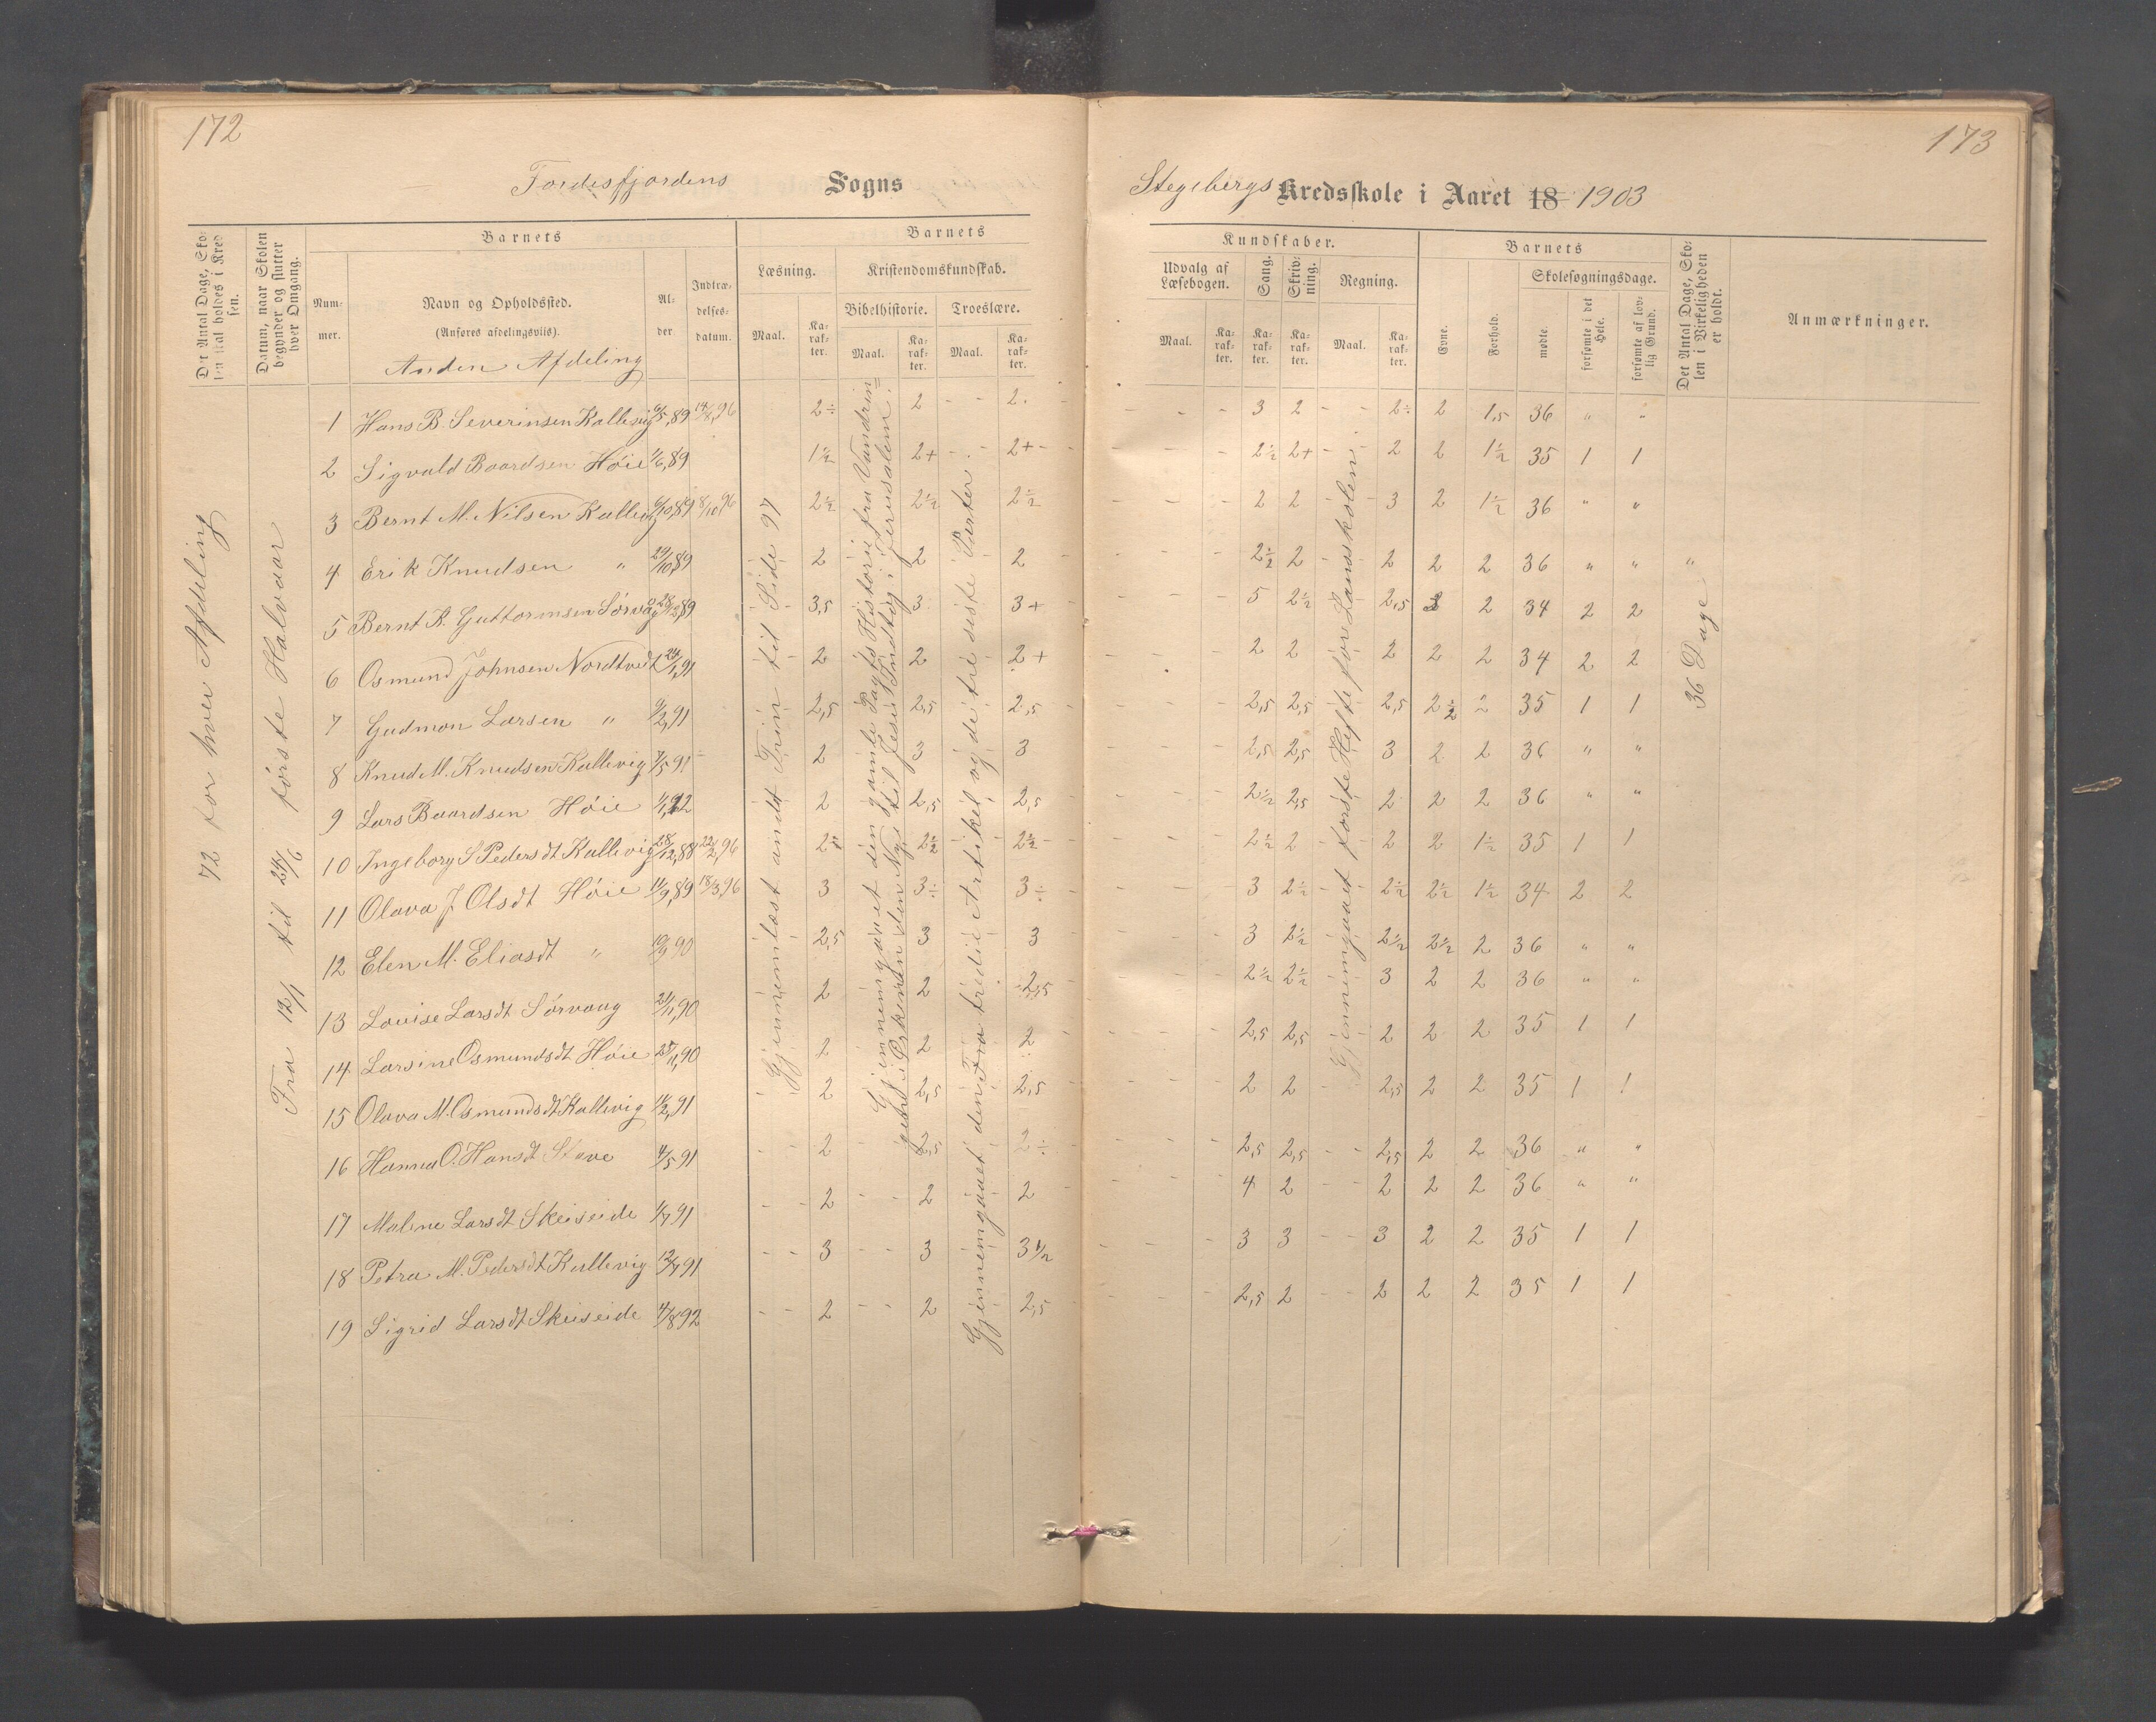 172
Fordesfjordens Sogns
Det Antal Dage, Skolen skal holdes i Kredsen.
Datum, naar Skolen begynder og slutter hver Omgang.
Barnets
Nummer.
Navn og Opholdssted.
(Anføres afdelingsviis).
Anden Afdeling
Alder
Indtrædelsesdatum.
Barnets
Læsning.
Maal.
Karakter.
Kristendomskundskab.
Bibelhistorie.
Maal.
Karakter.
Troeslære.
Maal.
Karakter.
72 for hver Afdeling
Fra 12/1 til 24/6 første Halvaar
1 Hans B. Severinsen Kallevig 6/5,89 14/8,96 2÷ 2 - - 2.
2 Sigvald Baardsen Høie 1/6,89 1½ 2+ - - 2+ -
3 Bernt M. Nilsen Kallevig 6/10,89 8/10,96 2½ 2½ 2½
4 Erik Knudsen " 29/10,89 2 2 2
5 Bernt K. Guttormsen Sørvåg 28/12,89 3,5 3 3+
6 Osmund Johnsen Nordtvedt 24/1,91 2 2 2+
7 Gudmon Larsen " 9/2,91 2,5 2,5 2,5
8 Knud M. Knudsen Kallevig 7/5 91 2 3 3
9 Lars Baardsen Høie 1/1,92 2 2,5 2,5
10 Ingeborg S Pedersdt Kallevig 28/12,88 22/2,96 2÷ 2½ 2½
11 Olava J Olsdt Høie 11/9,89 18/3,96 3 3÷ 3÷
12 Elen M. Eliasdt " 19/9 90 2,5 3 3
13 Louise Larsdt Sørvaag 21/11,90 2 2 2,5
14 Larsine Osmundsdt Høie 25/11,90 2 2 2
15 Olava M. Osmundsdt Kallevig 11/2,91 2 2,5 2,5
16 Hanna O. Hansdt Stave 4/5 91 2 2,5 2÷
17 Malene Larsdt Skeiseide 1/7 91 2 2 2
18 Petra M. Pedersdt Kallevig 12/7 91 3 3 3½
19 Sigrid Larsdt Skeiseide 4/8 92 2 2 2,5
Gjennemlæst andet Trin til Side 97
Gjennemgaaet den gamle Pagts Historie fra Vandrin=
gen i Ørkenen den Nye til Jesu Indtog i Jerusalem.
Gjennemgaaet den Fra tredie Artikel og de tre siste Parter
173
Stegebergs Kredsskole i Aaret 18 1903
Kundskaber.
Udvalg af Læsebogen.
Maal.
Karakter.
Sang.
Karakter.
Skrivning.
Karakter.
Regning.
Maal.
Karakter.
Barnets
Evne.
Forhold.
Skolesøgningsdage.
mødte.
forsømte i det Hele.
forsømte af lovlig Grund.
Det Antal Dage, Skolen i Virkeligheden er holdt.
Anmærkninger.
- - - 3 2 - - 2÷ 2 1,5 36 " "
- - - 2½ 2+ - - 2 2 1½ 35 1 1
- - - 2 2 - - 3 2 1½ 36 " "
- - - 2½ 2 - - 2 2 2 36 " " "
- - - 5 2½ - - 2,5 2 2 34 2 2
- - - 2 2 2 2 2 34 2 2
- - - 2,5 2,5 2,5 2½ 2 35 1 1
- - - 2,5 2,5 3 2 2 36 " "
- - - 2½ 2,5 2 2 2 36 " "
- - - 2½ 2 2 2 1½ 35 1 1
- - - 3 2½ 2½ 2½ 1½ 34 2 2
- - - 3 2½ 2½ 2½ 2 36 " "
- - - 2½ 2½ 3 2 2 36 " "
- - - 2,5 2,5 2 2 2 35 1 1
- - - 2 2 2,5 2 2 35 1 1
- - - 2,5 2,5 - - 2,5 2 2 36 " "
- - - 4 2 - - 2 2 2 36 " "
- - - 3 3 - - 3 2 2 35 1 1
- - - 2,5 2 - - 2 2 2 35 1 1
Gjennemgaaet første Hefte for Landsskolen
36 Dage